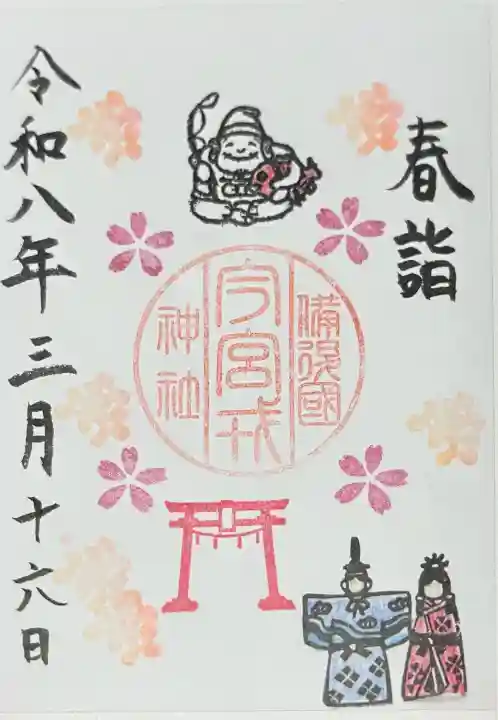 春詣
備後國
今宮戎
神社
令和八年三月十六日